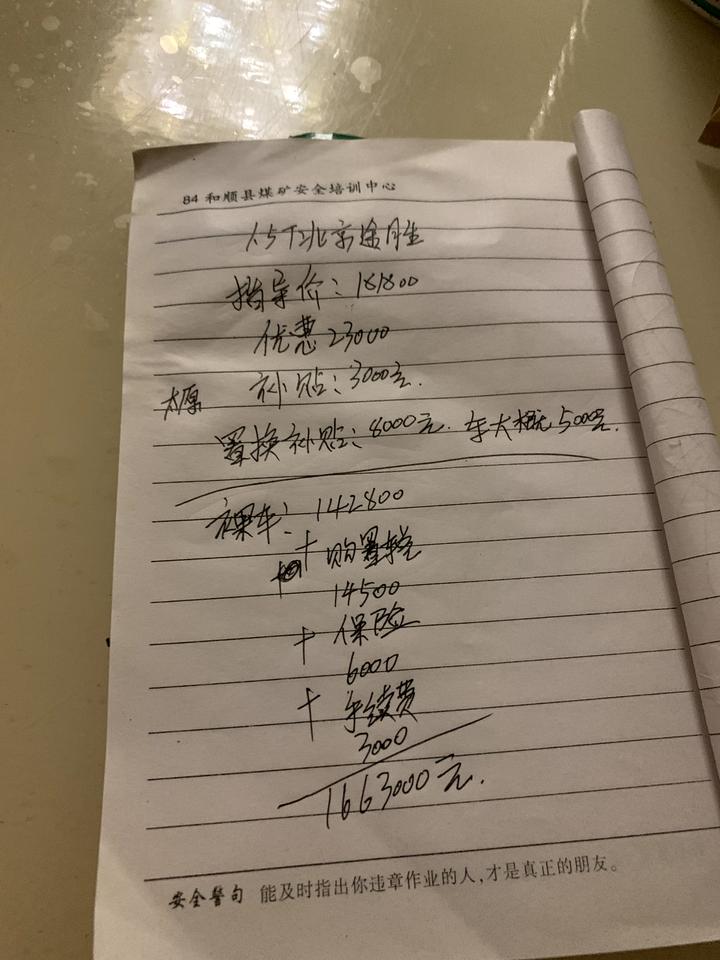 84 和顺县煤矿安全培训中心
1.5T北京途胜
指导价：181800
优惠23000
太原 补贴：3000元.
置换补贴：8000元. 车大概5000元.
裸车：142800
+ 购置税
14500
+ 保险
6000
+ 手续费
3000
1663000元.
安全警句 能及时指出你违章作业的人,才是真正的朋友。